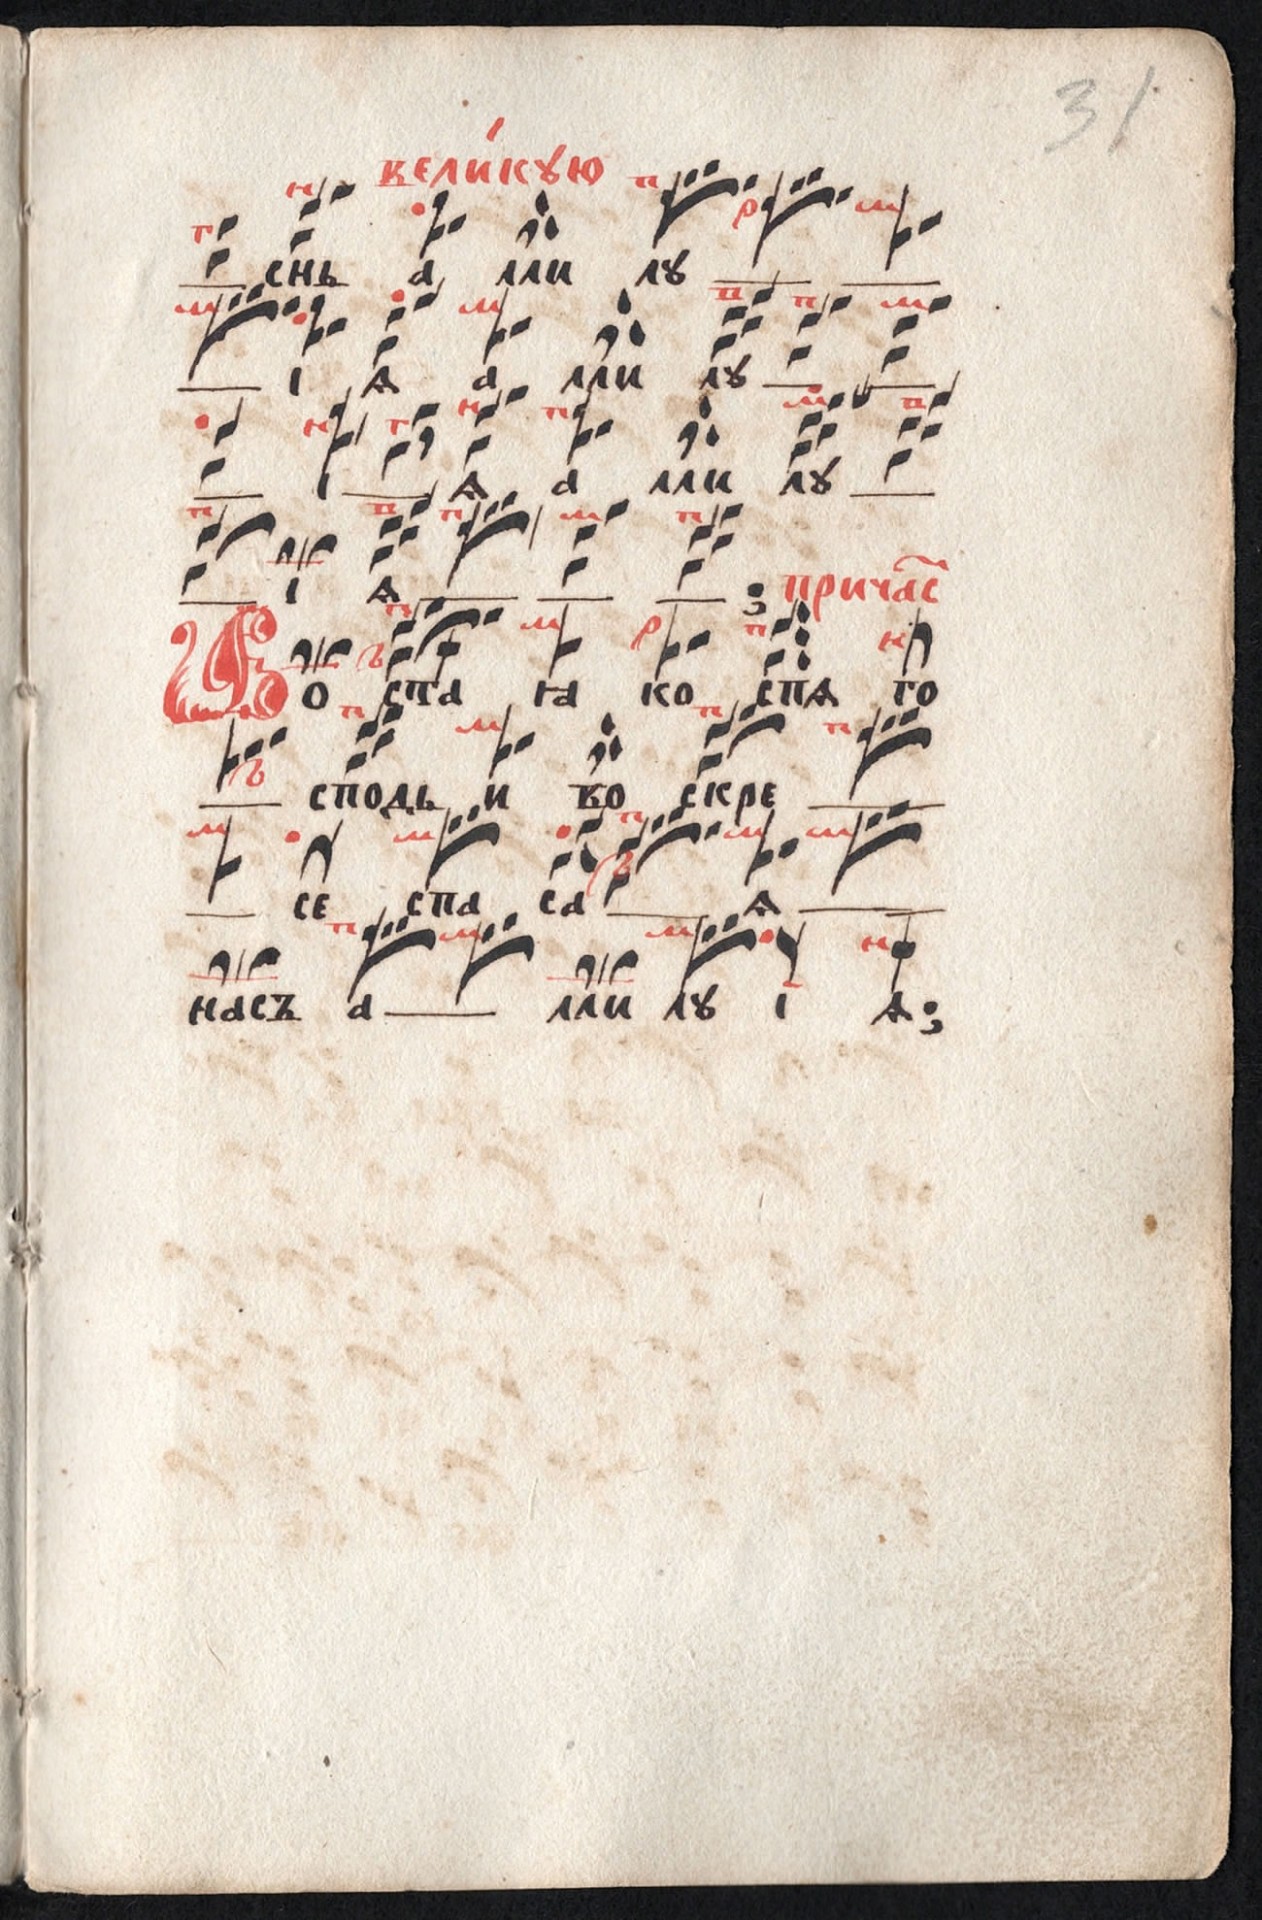 31
вели́кꙋю
снь а лли лꙋ
і ѧ а лли лꙋ
і ѧ а лли лꙋ
і ѧ ; прича́с
Во спа ꙗ ко спѧ го
сподь и во скре
се спа са ѧ
насъ а лли лꙋ і ѧ ;